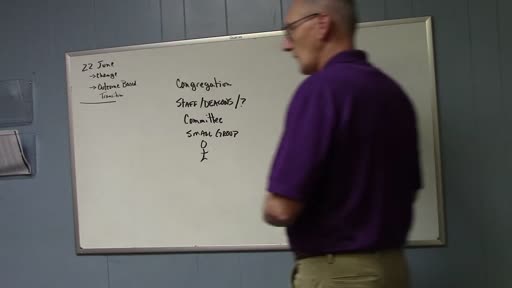 22 June
→ Change
→ Outcome Based
Transition
Congregation
STAFF/DEACONS/?
Committee
SMALL GROUP